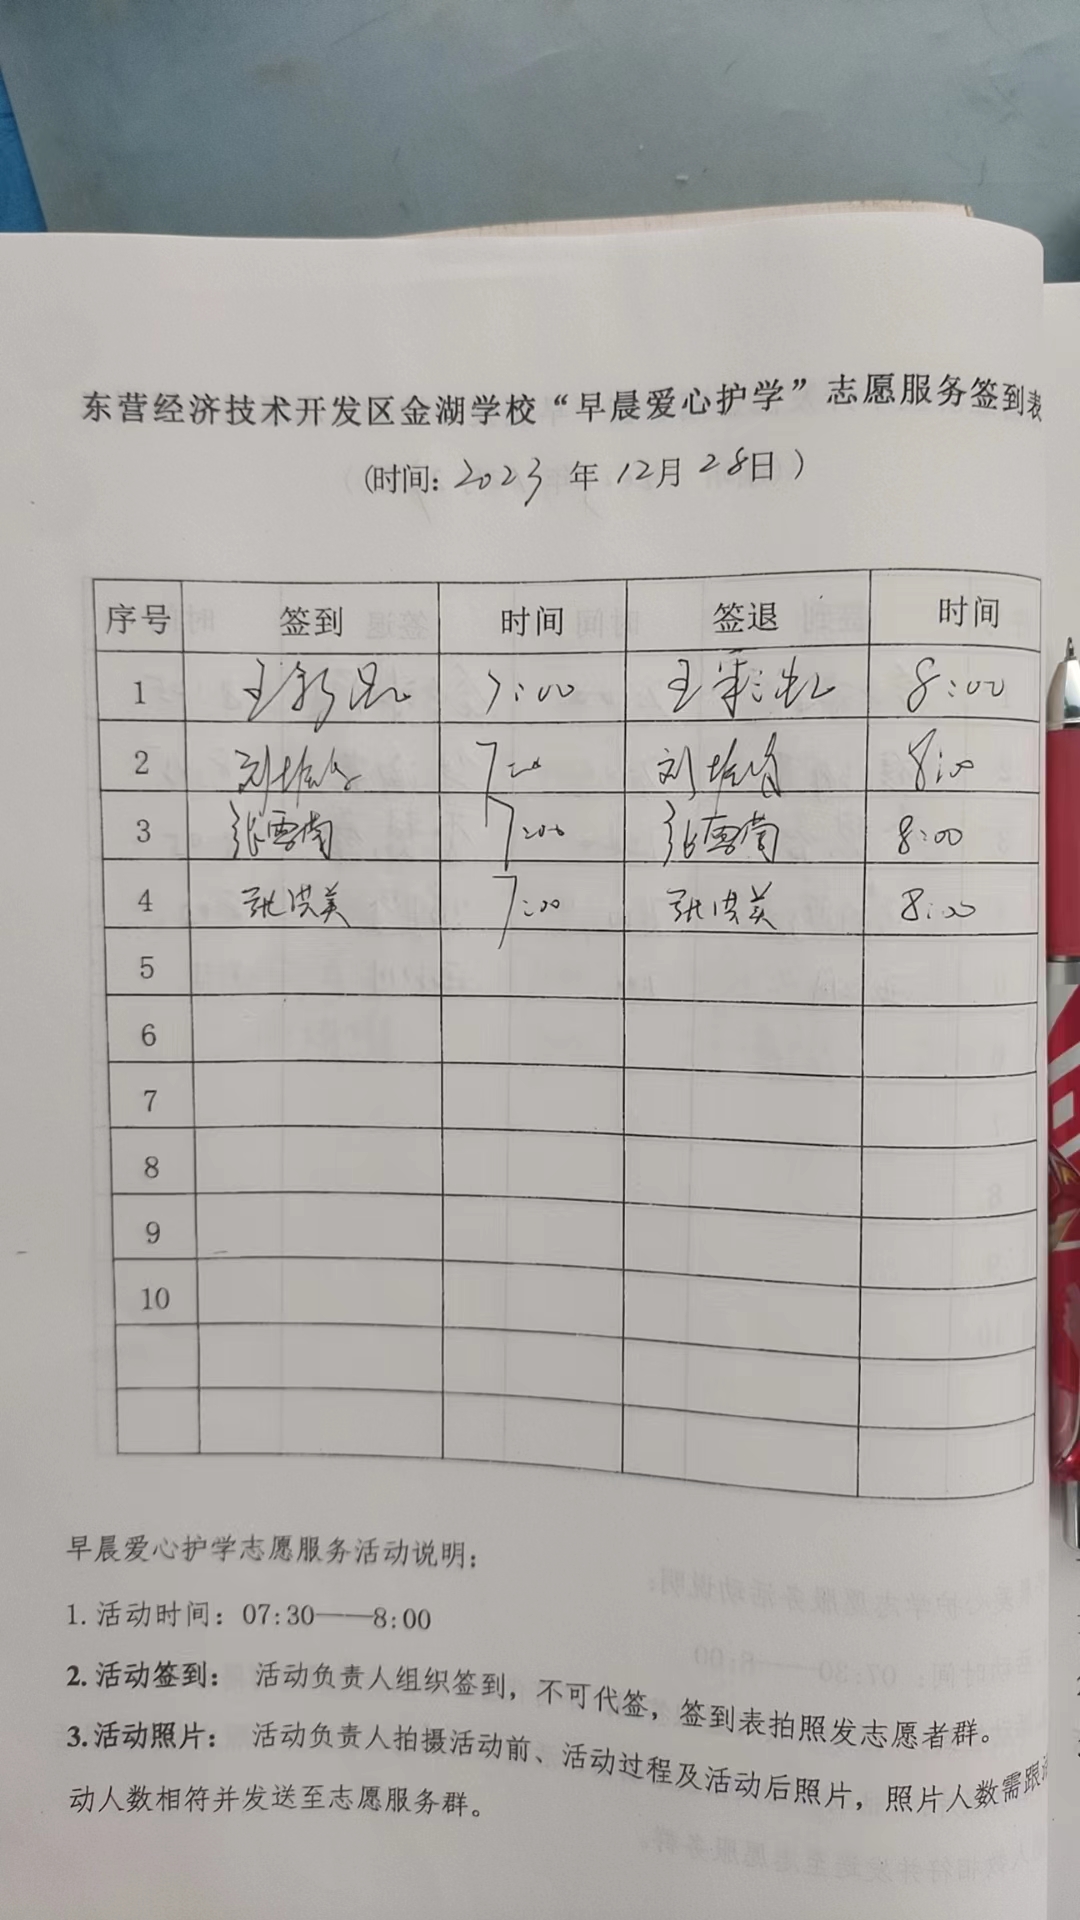 东营经济技术开发区金湖学校“早晨爱心护学”志愿服务签到表
(时间: 2023 年 12月 28日)
序号 签到 时间 签退 时间
1 王彩虹 7:00 王彩虹 8:00
2 刘 7:00 刘 8:00
3 张雪南 7:00 张雪南 8:00
4 张洪美 7:00 张洪美 8:00
5
6
7
8
9
10
早晨爱心护学志愿服务活动说明:
1. 活动时间: 07:30——8:00
2. 活动签到: 活动负责人组织签到, 不可代签, 签到表拍照发志愿者群。
3. 活动照片: 活动负责人拍摄活动前、活动过程及活动后照片, 照片人数需跟
动人数相符并发送至志愿服务群。